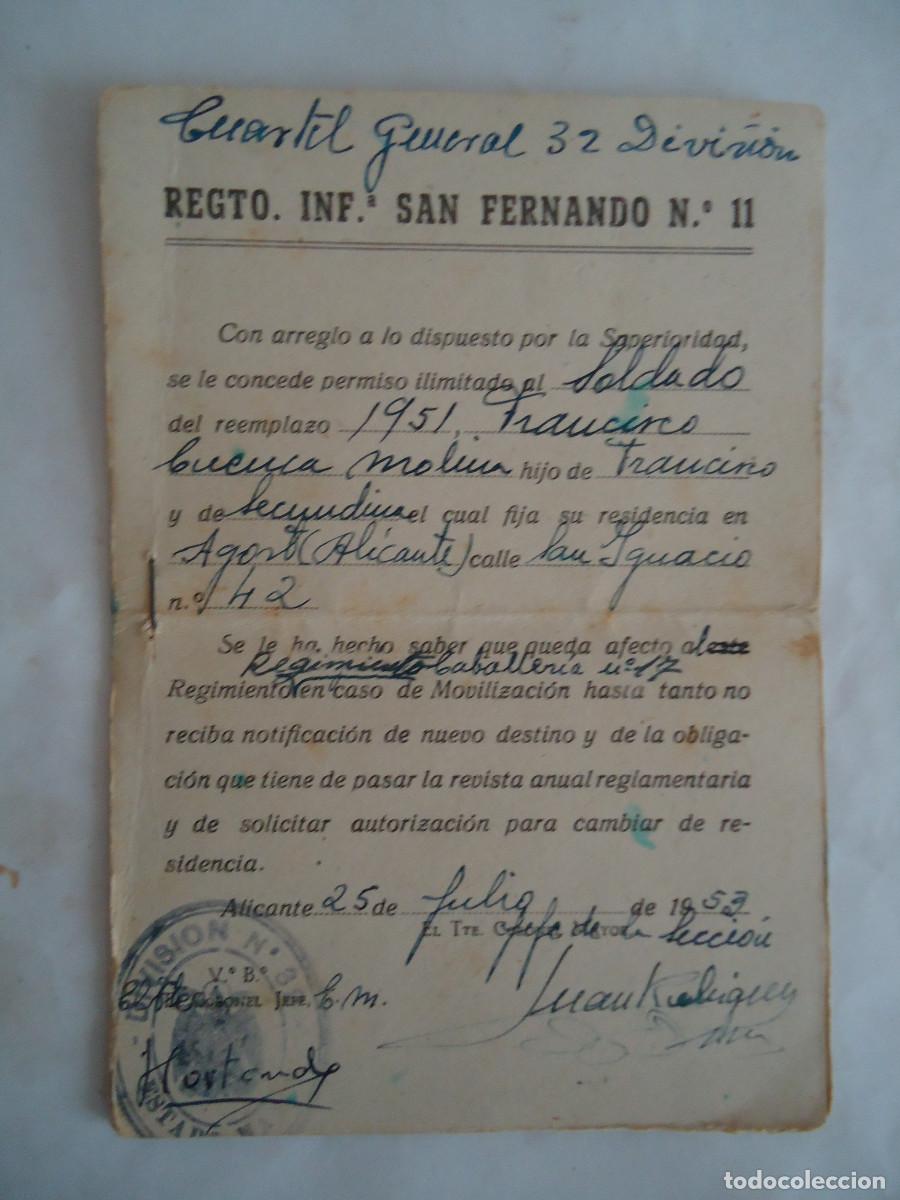 Cuartel General 32 División
REGTO. INF.ª SAN FERNANDO N.º 11
Con arreglo a lo dispuesto por la Superioridad,
se le concede permiso ilimitado al Soldado
del reemplazo 1951, Francisco
Cuenca Molina hijo de Francisco
y de Secundina el cual fija su residencia en
Agost (Alicante) calle San Ignacio
n.º 42
Se le ha hecho saber que queda afecto al este
Regimiento Caballeria nº 17
Regimiento en caso de Movilización hasta tanto no
reciba notificación de nuevo destino y de la obliga-
ción que tiene de pasar la revista anual reglamentaria
y de solicitar autorización para cambiar de re-
sidencia.
Alicante 25 de Julio de 1953
EL TTE. MAYOR
Jefe de la Sección
V.º B.º
CORONEL JEFE, E.M.
Juan Rodriguez
DIVISION N.º 3
ESTADO MA
todocoleccion